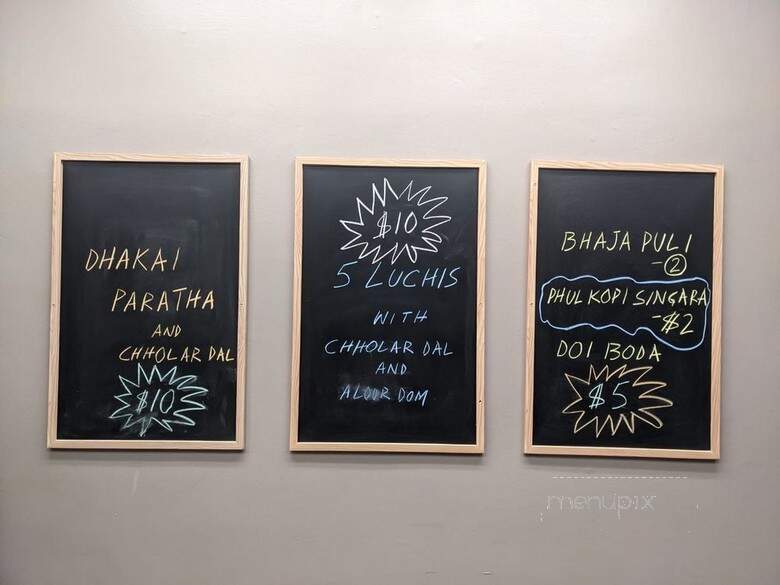 DHAKAI
PARATHA
AND
CHHOLAR DAL
$10
$10
5 LUCHIS
WITH
CHHOLAR DAL
AND
ALOOR DOM
BHAJA PULI
-2
PHULKOPI SINGARA
-$2
DOI BODA
$5
menupix